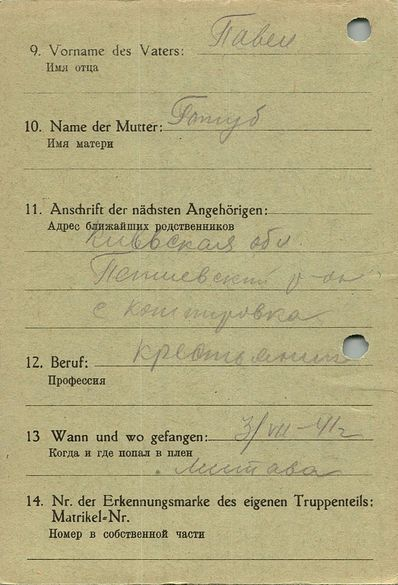 9. Vorname des Vaters: Павел
Имя отца
10. Name der Mutter:
Имя матери
11. Anschrift der nächsten Angehörigen:
Адрес ближайших родственников
Киевская обл.
р-он
с
12. Beruf: крестьянин
Профессия
13 Wann und wo gefangen: 3/VII-41г
Когда и где попал в плен
Митава
14. Nr. der Erkennungsmarke des eigenen Truppenteils:
Matrikel-Nr.
Номер в собственной части